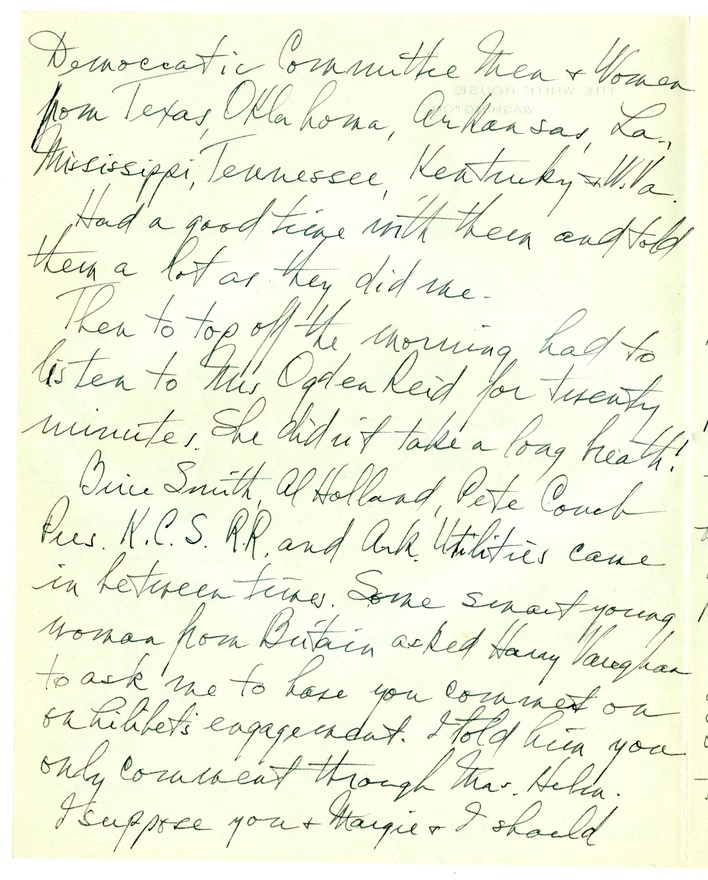 Democratic Committee Men & Women
from Texas, Oklahoma, Arkansas, La.,
Mississippi, Tennessee, Kentucky & W. Va.
Had a good time with them and told
them a lot as they did me.
Then to top off the morning had to
listen to Mrs Ogden Reid for twenty
minutes. She didn't take a long breath!
Smith, Al Holland, Pete Couch
Pres. K.C.S. R.R. and Ark. Utilities came
in between times. Some smart young
woman from Britain asked Harry Vaughan
to ask me to have you comment on
engagement. I told him you
only comment through Mrs. Helm.
I suppose you & Margie & I should
THE WHITE HOUSE
WASHINGTON